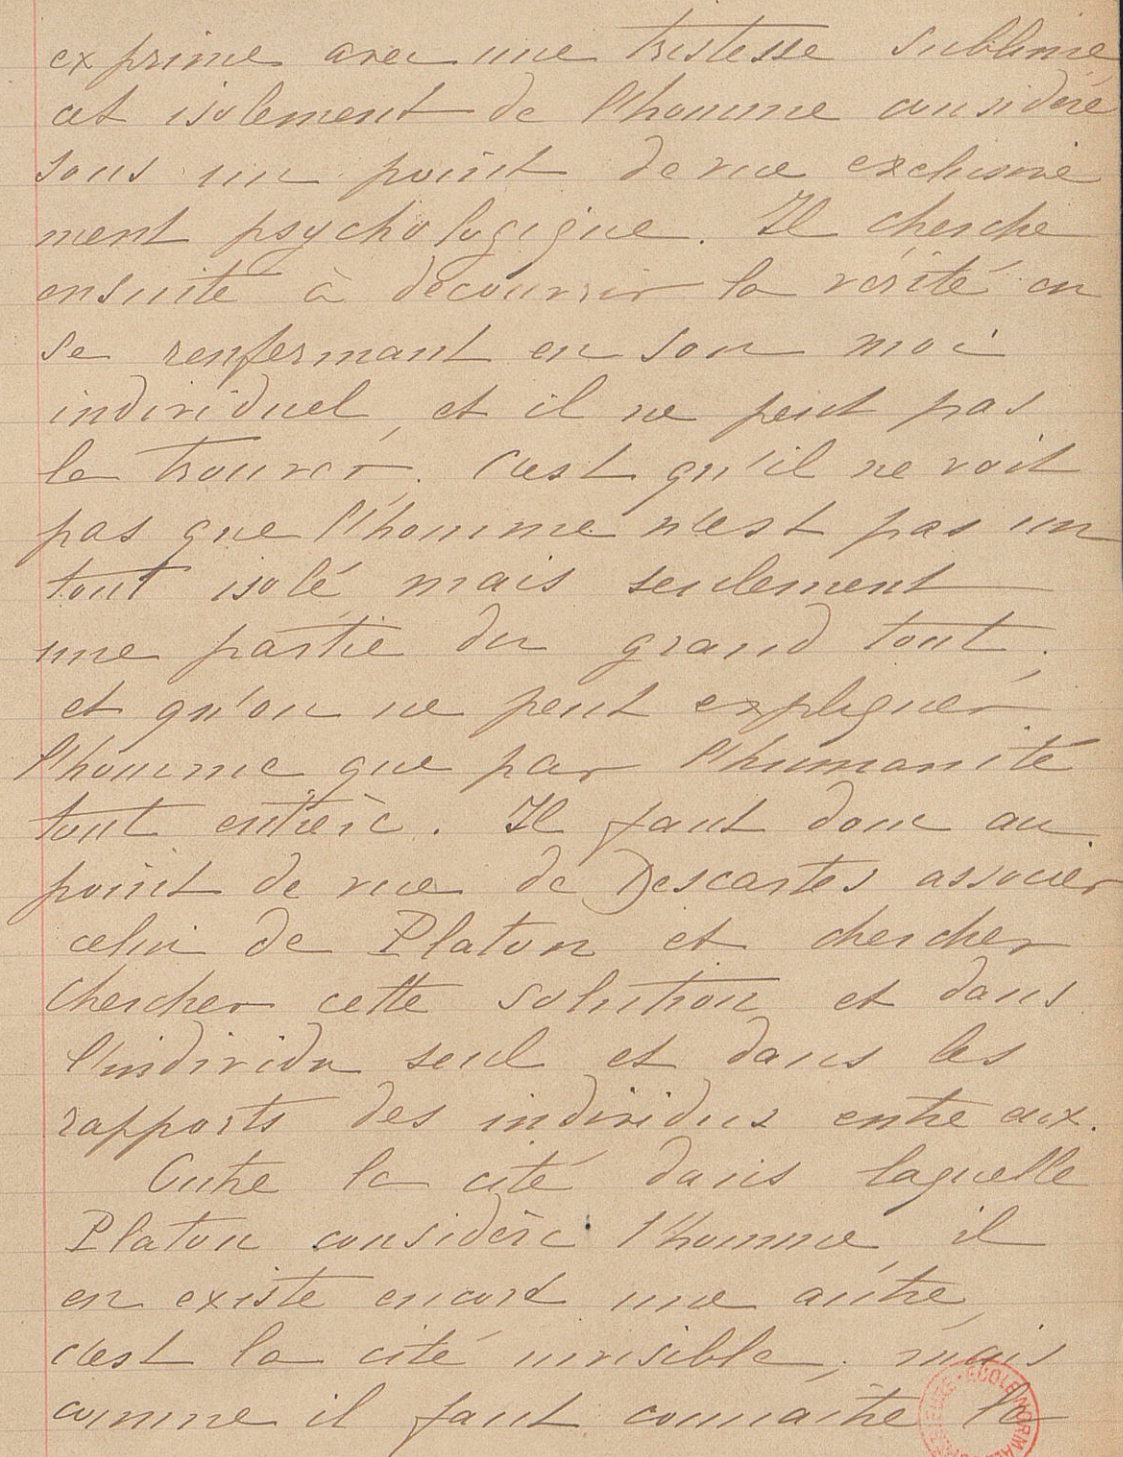 exprime avec une tristesse sublime
cet isolement de l'homme considéré
sous un point de vue exclusive
ment psychologique. Il cherche
ensuite à découvrir la vérité en
se renfermant en son moi
individuel, et il ne peut pas
la trouver. C'est qu'il ne voit
pas que l'homme n'est pas un
tout isolé, mais seulement
une partie du grand tout ;
et qu'on ne peut expliquer
l'homme que par l'humanité
tout entière. Il faut donc au
point de vue de Descartes associer
celui de Platon et chercher
chercher cette solution et dans
l'individu seul et dans les
rapports des individus entre eux.
Outre la cité dans laquelle
Platon considère l'homme, il
en existe encore une autre,
c'est la cité invisible ; mais
comme il faut connaître la
ÉCOLE NORMALE